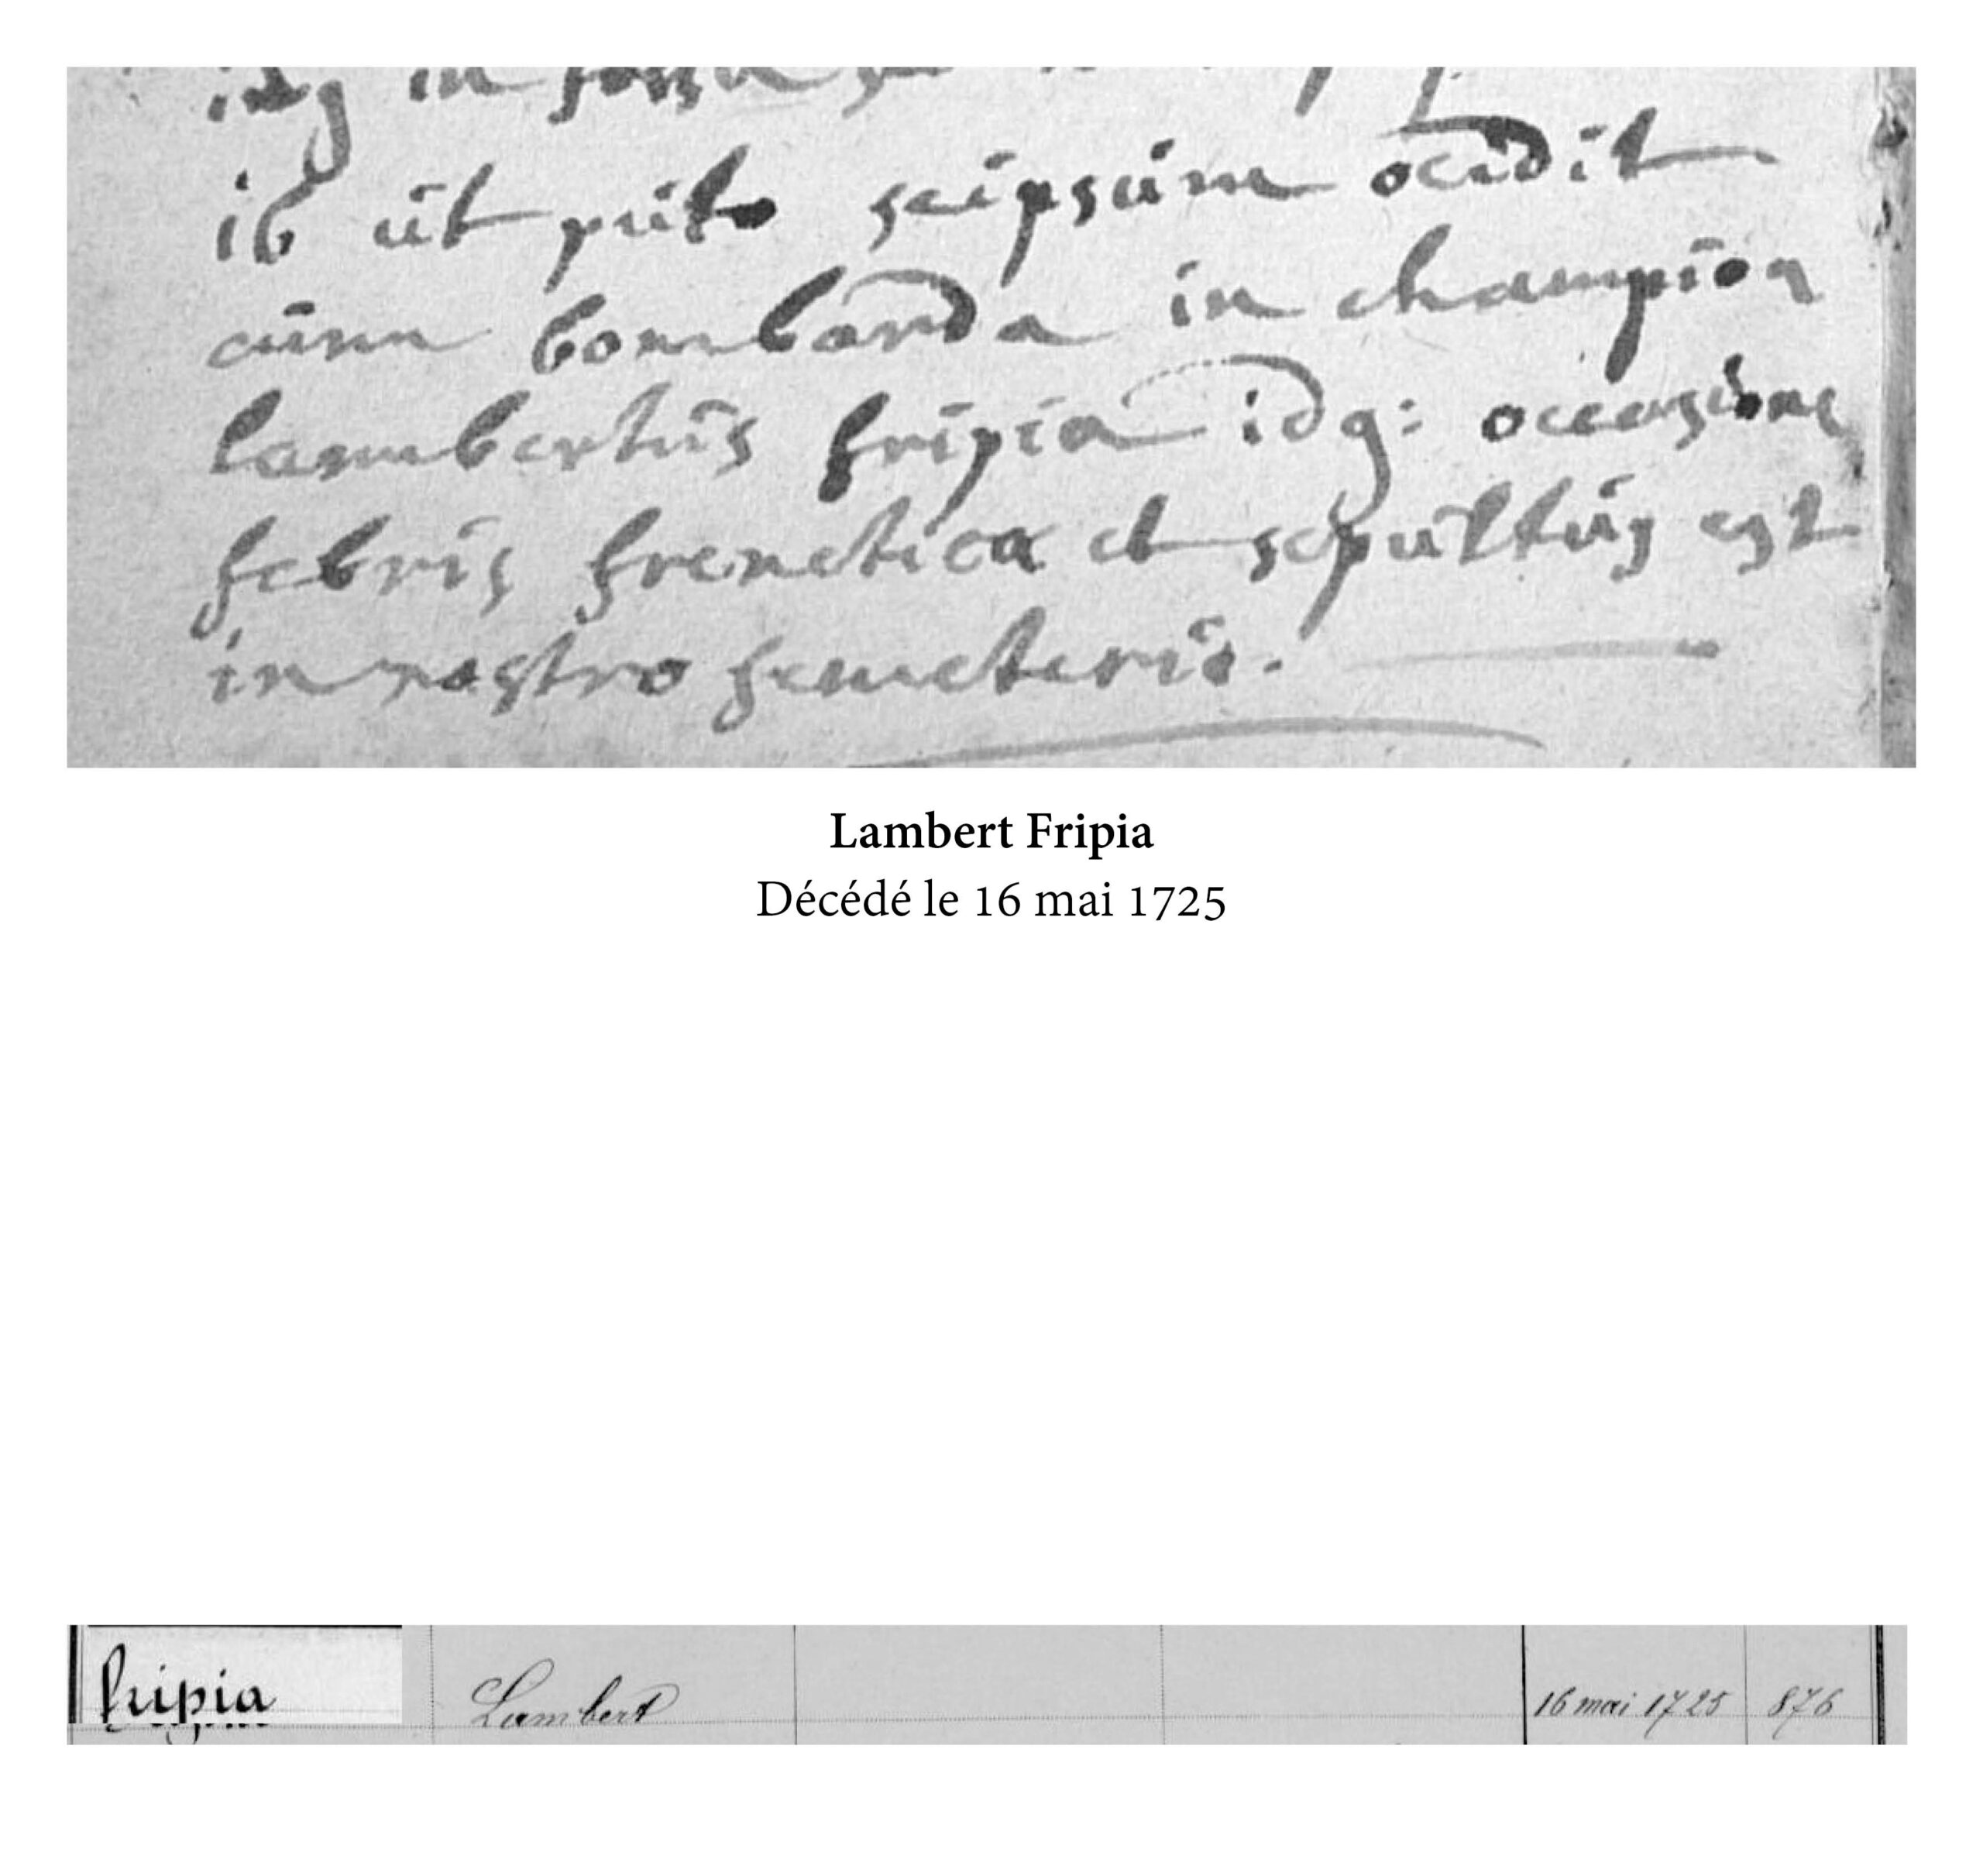 idq in fossa
16 ut puto seipsum ocidit
cum bombarda in champion
lambertus fripia idq: occasione
febris frenetica et sepultus est
in nostro semeterio.
Lambert Fripia
Décédé le 16 mai 1725
fripia Lambert 16 mai 1725 876